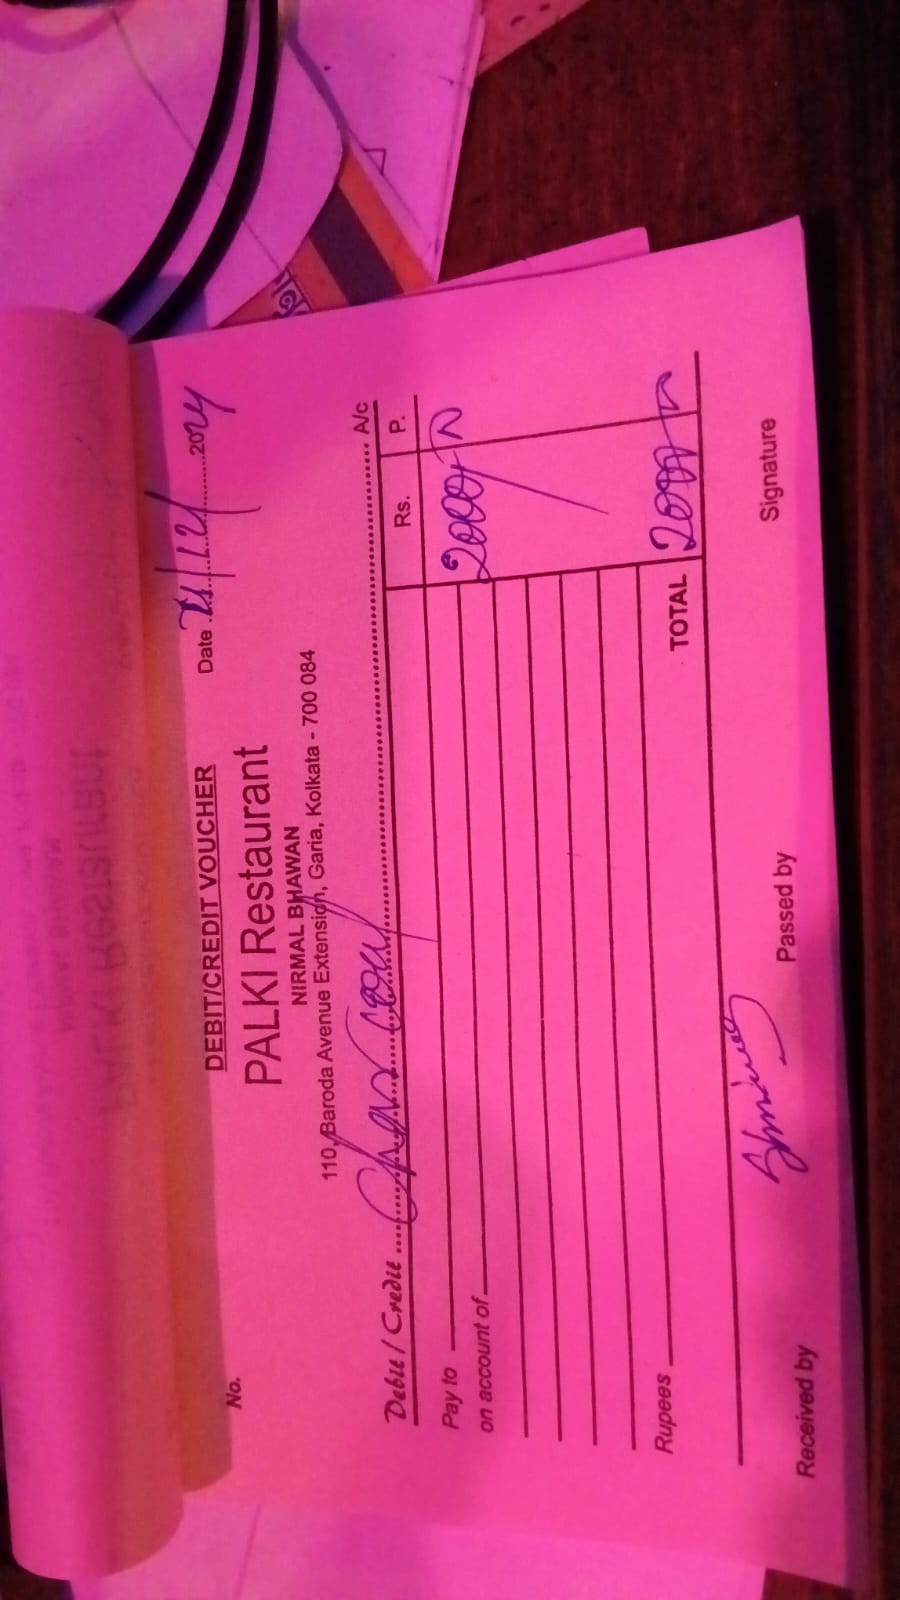 No.
DEBIT/CREDIT VOUCHER
Date 21/12/2024
PALKI Restaurant
NIRMAL BHAWAN
110, Baroda Avenue Extension, Garia, Kolkata - 700 084
Debit / Credit A/c
Rs. P.
Pay to 2000/
on account of
Rupees TOTAL 2000
Received by Passed by Signature